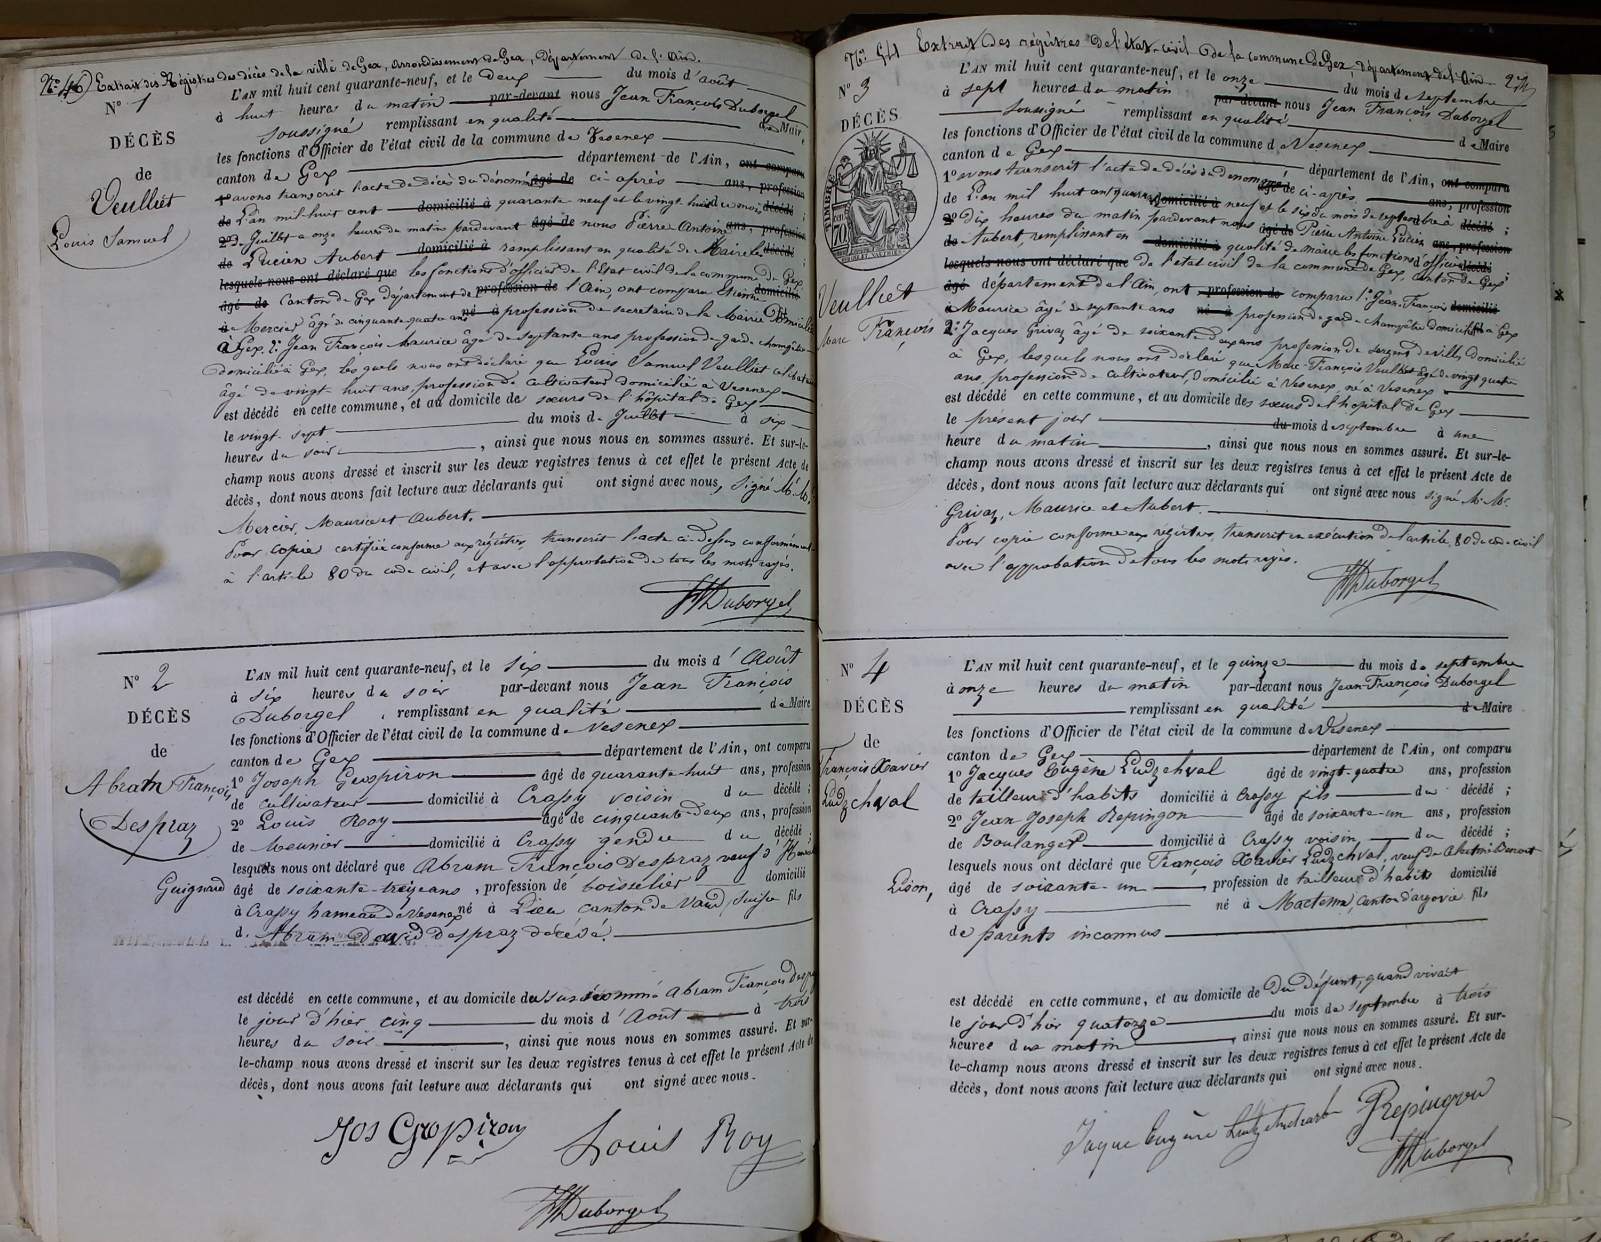 No 46) Extrait des Régistres des décès de la ville de Gex, arrondissement de Gex, Département de l'Ain.
No 1
DÉCÈS
de
Veulliet
Louis Samuel
L'AN mil huit cent quarante-neuf, et le deux du mois d'août
à huit heures du matin par-devant nous Jean François Duborgel
soussigné remplissant en qualité de Maire
les fonctions d'Officier de l'état civil de la commune de Vesenex
canton de Gex département de l'Ain, ont comparu
1º avons transcrit l'acte de décès du dénommé âgé de ci-après ans, profession
de L'an mil huit cent domicilié à quarante neuf et le vingt huit du mois décédé ;
2º de Juillet a onze heures du matin pardevant âgé de nous Pierre Antoine ans, profession
de Lucien Aubert domicilié à remplissant en qualité de Maire le décédé ;
lesquels nous ont déclaré que les fonctions d'officier de l'Etat civil de la commune de Gex,
âgé de Canton de Gex département de profession de l'Ain, ont comparu Etienne domicilié
à Mercier âgé de cinquante quatre ans né à profession de secretaire de la Mairie Domicilié
à Gex. 2º Jean François Maurice âge de septante ans profession de garde champêtre
domicilié à Gex, les quels nous ont déclaré que Louis Samuel Veulliet celibataire
âgé de vingt huit ans, profession de cultivateur domicilié a Vesenex
est décédé en cette commune, et au domicile de sœurs de l'hôpital de Gex
le vingt sept du mois de Juillet à six
heures du soir , ainsi que nous nous en sommes assuré. Et sur-le-
champ nous avons dressé et inscrit sur les deux registres tenus à cet effet le présent Acte de
décès, dont nous avons fait lecture aux déclarants qui ont signé avec nous, signé M. M.
Mercier, Maurice et Aubert.
Pour copie certifiée conforme aux régistres, transcrit l'acte ci-dessus conformément
à l'article 80 du code civil, et avec l'approbation de tous les mots rayés.
Duborgel
No 2
DÉCÈS
de
Abram François
Despraz
L'AN mil huit cent quarante-neuf, et le six du mois d'Août
à six heures du soir par-devant nous Jean François
Duborgel , remplissant en qualité de Maire
les fonctions d'Officier de l'état civil de la commune de Vesenex
canton de Gex département de l'Ain, ont comparu
1º Joseph Grospiron âgé de quarante-huit ans, profession
de cultivateur domicilié à Crassy voisin du décédé ;
2º Louis Roy âgé de cinquante-deux ans, profession
de Meunier domicilié à Crassy gendre du décédé ;
lesquels nous ont déclaré que Abram François Despraz veuf d'
Guignard âgé de soixante-treize ans , profession de boisselier domicilié
à Crassy hameau de Vesenex né à Lieu canton de Vaud, Suisse fils
d. Abram David Despraz décédé.
est décédé en cette commune, et au domicile du susdénommé Abram François Despraz
le jour d'hier cinq du mois d'Août à trois
heures du soir , ainsi que nous nous en sommes assuré. Et sur-
le-champ nous avons dressé et inscrit sur les deux registres tenus à cet effet le présent Acte de
décès, dont nous avons fait lecture aux déclarants qui ont signé avec nous.
Jos Gropiron Louis Roy
Duborgel
No 54 Extrait des régistres de l'état-civil de la commune de Gex, département de l'Ain
No 3
DÉCÈS
TIMBRE
70
Veulliet
Marc François
L'AN mil huit cent quarante-neuf, et le onze du mois de septembre
à sept heures du matin par-devant nous Jean François Duborgel
soussigné remplissant en qualité de Maire
les fonctions d'Officier de l'état civil de la commune de Vesenex
canton de Gex département de l'Ain, ont comparu
1º avons transcrit l'acte de décès du dénommé âgé de ci-après ans, profession
de L'an mil huit cent quarante domicilié à neuf et le six du mois de septembre à décédé ;
2º Dix heures du matin pardevant nous âgé de Pierre Antoine Lucien ans, profession
de Aubert, remplissant en domicilié à qualité de maire les fonctions d'officier décédé ;
lesquels nous ont déclaré que de l'état civil de la commune de Gex, canton de Gex
âgé département de l'Ain, ont profession de comparu 1º Jean François domicilié
à Maurice âgé de septante ans né à profession de garde champêtre domicilié à Gex
2º Jacques Grivaz âgé de soixante deux ans profession de sergent de ville, domicilié
à Gex, lesquels nous ont déclaré que Marc François Veulliet âgé de vingt quatre
ans, profession de cultivateur, domicilié à Vesenex né à Vesenex
est décédé en cette commune, et au domicile des sœurs de l'hopital de Gex
le présent jour du mois de septembre à une
heure du matin , ainsi que nous nous en sommes assuré. Et sur-le-
champ nous avons dressé et inscrit sur les deux registres tenus à cet effet le présent Acte de
décès, dont nous avons fait lecture aux déclarants qui ont signé avec nous signé M. M.
Grivaz, Maurice et Aubert.
Pour copie conforme aux régistres, transcrit en exécution de l'article 80 du code civil
avec l'approbation de tous les mots rayés.
Duborgel
No 4
DÉCÈS
de
François Xavier
Ludzchval
L'AN mil huit cent quarante-neuf, et le quinze du mois de septembre
à onze heures du matin par-devant nous Jean-François Duborgel
remplissant en qualité de Maire
les fonctions d'Officier de l'état civil de la commune de Vesenex
canton de Gex département de l'Ain, ont comparu
1º Jacques Eugène Ludzchval âgé de vingt-quatre ans, profession
de tailleur d'habits domicilié à Crassy fils du décédé ;
2º Jean Joseph Repingon âgé de soixante-un ans, profession
de Boulanger domicilié à Crassy voisin du décédé ;
lesquels nous ont déclaré que François Xavier Ludzchval, veuf de
Lison, âgé de soixante-un , profession de tailleur d'habits domicilié
à Crassy né à canton d'argovie fils
de parents inconnus
est décédé en cette commune, et au domicile de Du défunt, quand vivait
le jour d'hier quatorze du mois de septembre à trois
heures du matin , ainsi que nous nous en sommes assuré. Et sur-
le-champ nous avons dressé et inscrit sur les deux registres tenus à cet effet le présent Acte de
décès, dont nous avons fait lecture aux déclarants qui ont signé avec nous.
Jaque Eugène Repingon
Duborgel